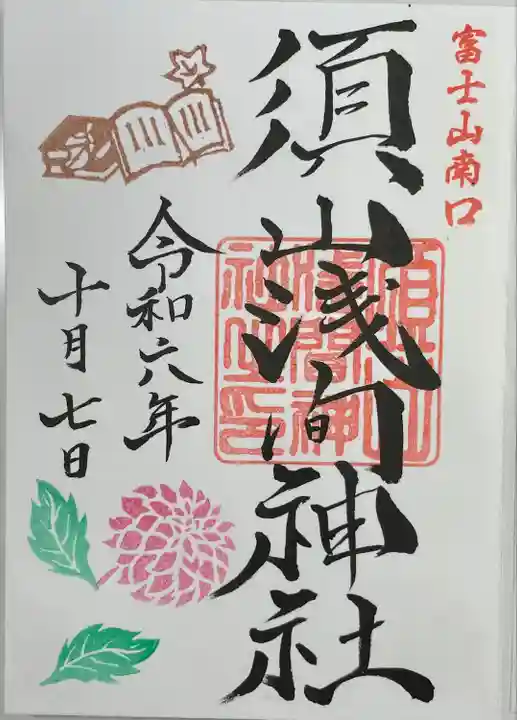 富士山南口
須山浅間神社
須山浅間神社之印
令和六年
十月七日